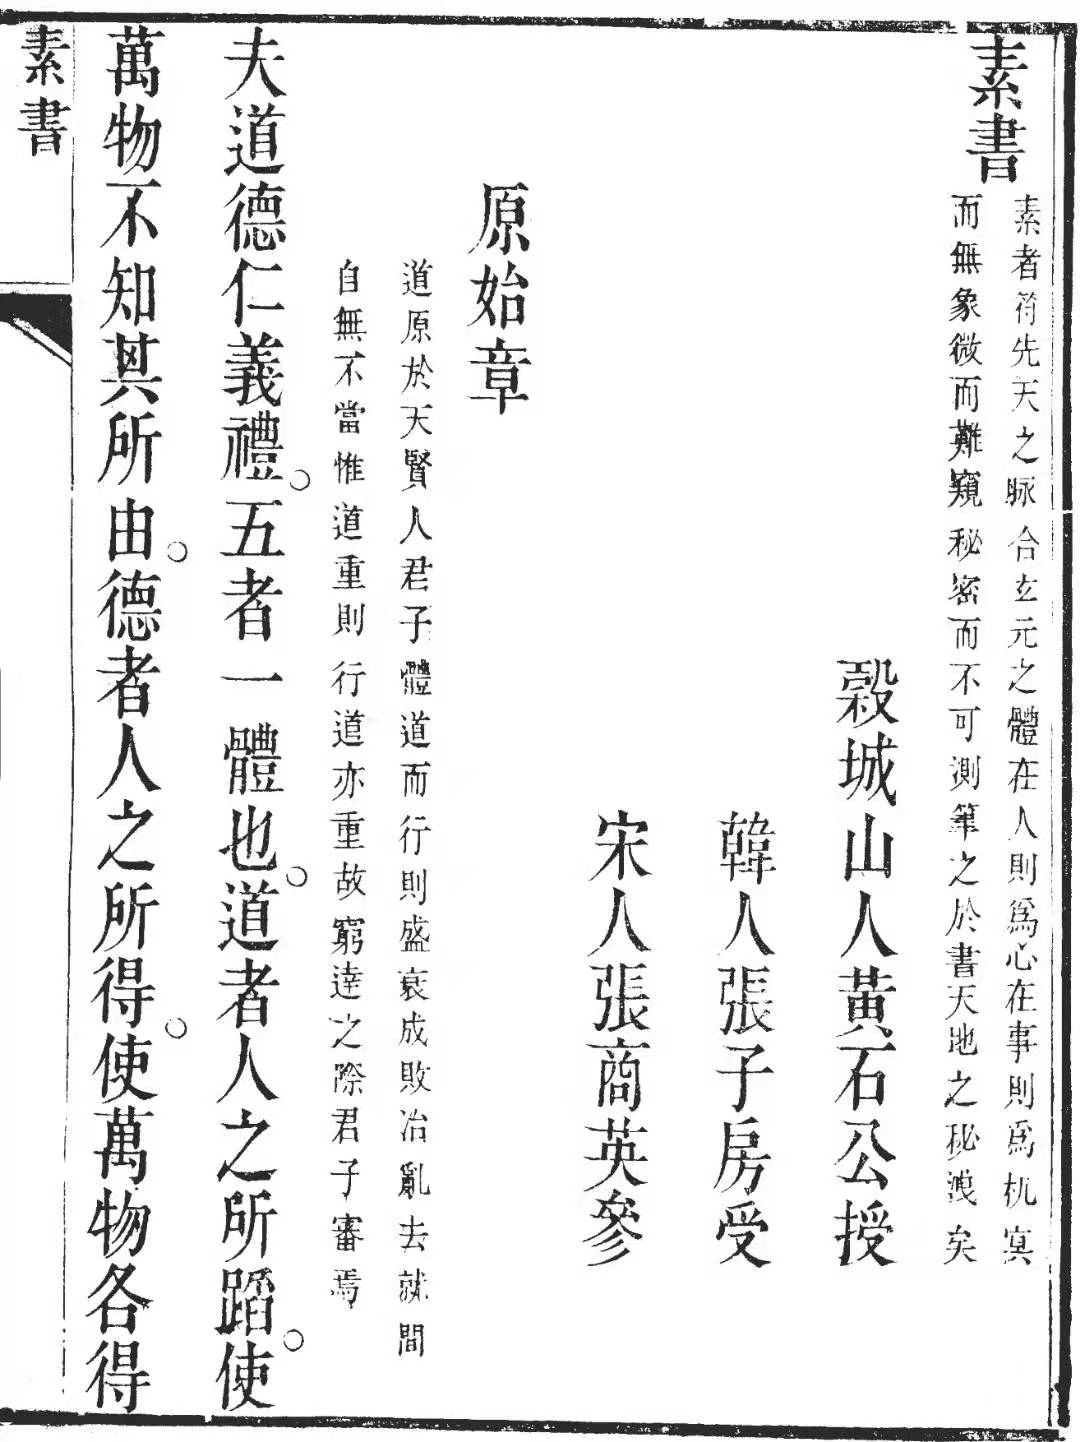 素書
素者符先天之脉合玄元之體在人則爲心在事則爲机㝠
而無象微而難窺秘密而不可測筆之於書天地之秘洩矣
穀城山人黃石公授
韓人張子房受
宋人張商英參
原始章
道原於天賢人君子體道而行則盛衰成敗治亂去就間
自無不當惟道重則行道亦重故窮達之際君子審焉
夫道德仁義禮。五者一體也。道者人之所蹈。使
萬物不知其所由。德者人之所得。使萬物各得
素書